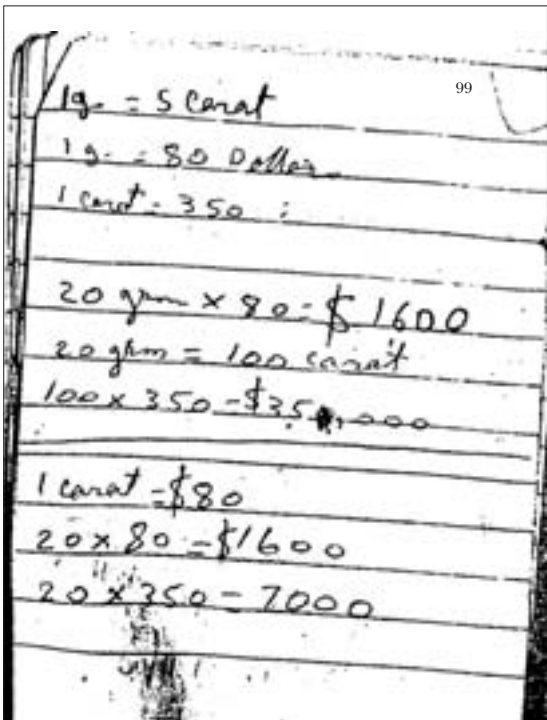 99
1g. = 5 Carat
1g. = 80 Dollar
1 carat = 350 :
20 grm × 80 = $1600
20 grm = 100 carat
100 × 350 = $35,000
1 carat = $80
20 × 80 = $1600
20 × 350 = 7000